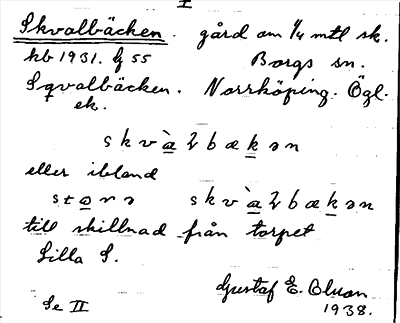 I
Skvalbäcken. gård om 1/4 mtl sk.
kb 1931. bg 55 Borgs sn.
Sqvalbäcken. Norrköping. Ögl.
ek.
skvàɫbækən
eller ibland
stɷrə skvàɫbækən
till skillnad från torpet
Lilla S.
Gustaf E.
Se II 1938.